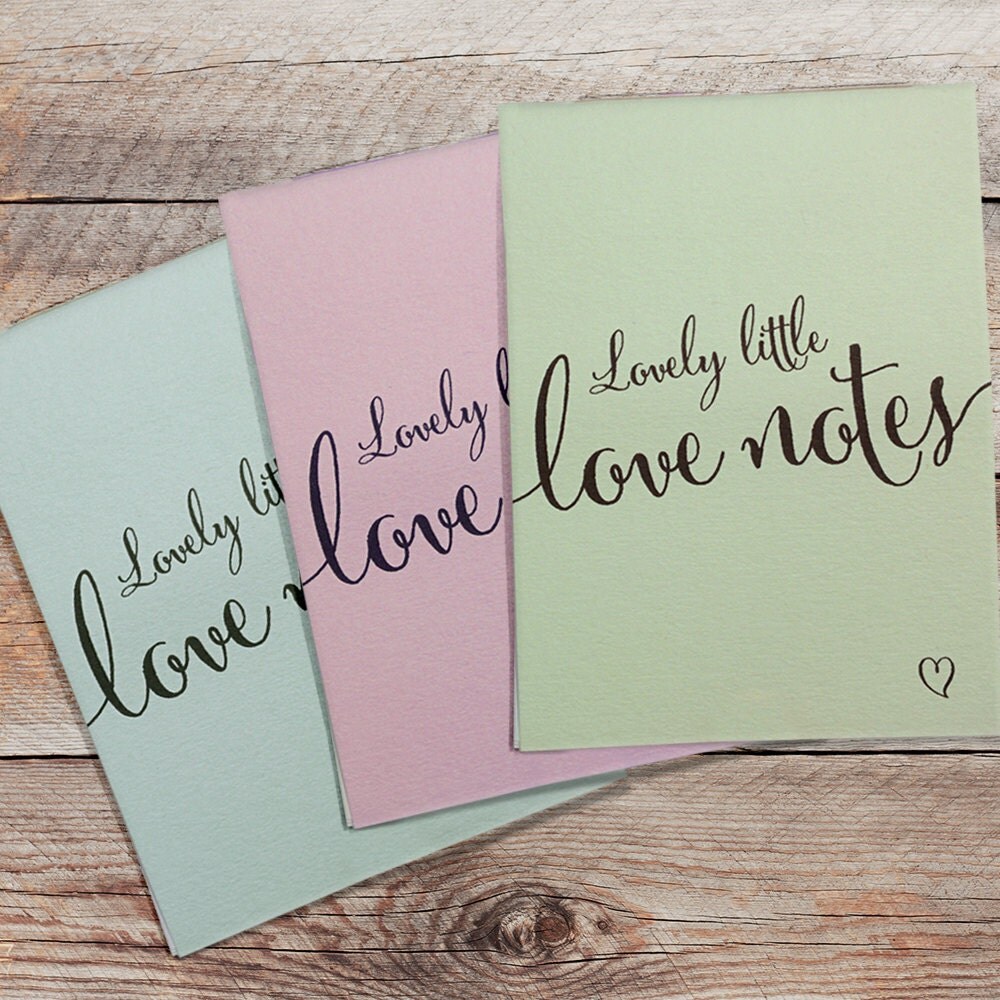 Lovely
love
Lovely
love
Lovely little
love notes